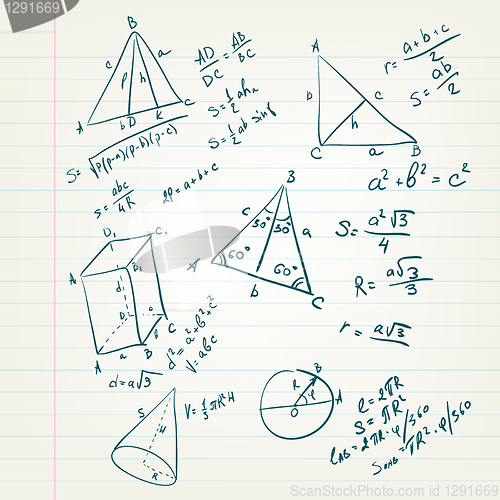 1091669
B
c
a
p
h
A
b D
K
C
AD/DC = AB/BC
S=1/2 ah_a
S=1/2 ab sin γ
S=√p(p-a)(p-b)(p-c)
S=abc/4R
2p=a+b+c
A
b
c
h
C
a
B
r=a+b+c/2
S=ab/2
a²+b²=c²
B
c
30° 30°
a
A
60°
60°
b
C
S=a²√3/4
R=a√3/3
r=a√3
D₁
C₁
A₁
B₁
d
D
c
C
A
a
B
b
d²=a²+b²+c²
V=abc
d=a√3
S
H
R
V=1/3 πR²H
B
R
φ
O
A
ℓ=2πR
S=πR²
ℓ_AB=2πR·φ/360
S_OAB=πR²·φ/360
© stockfresh.com
ID 1091669